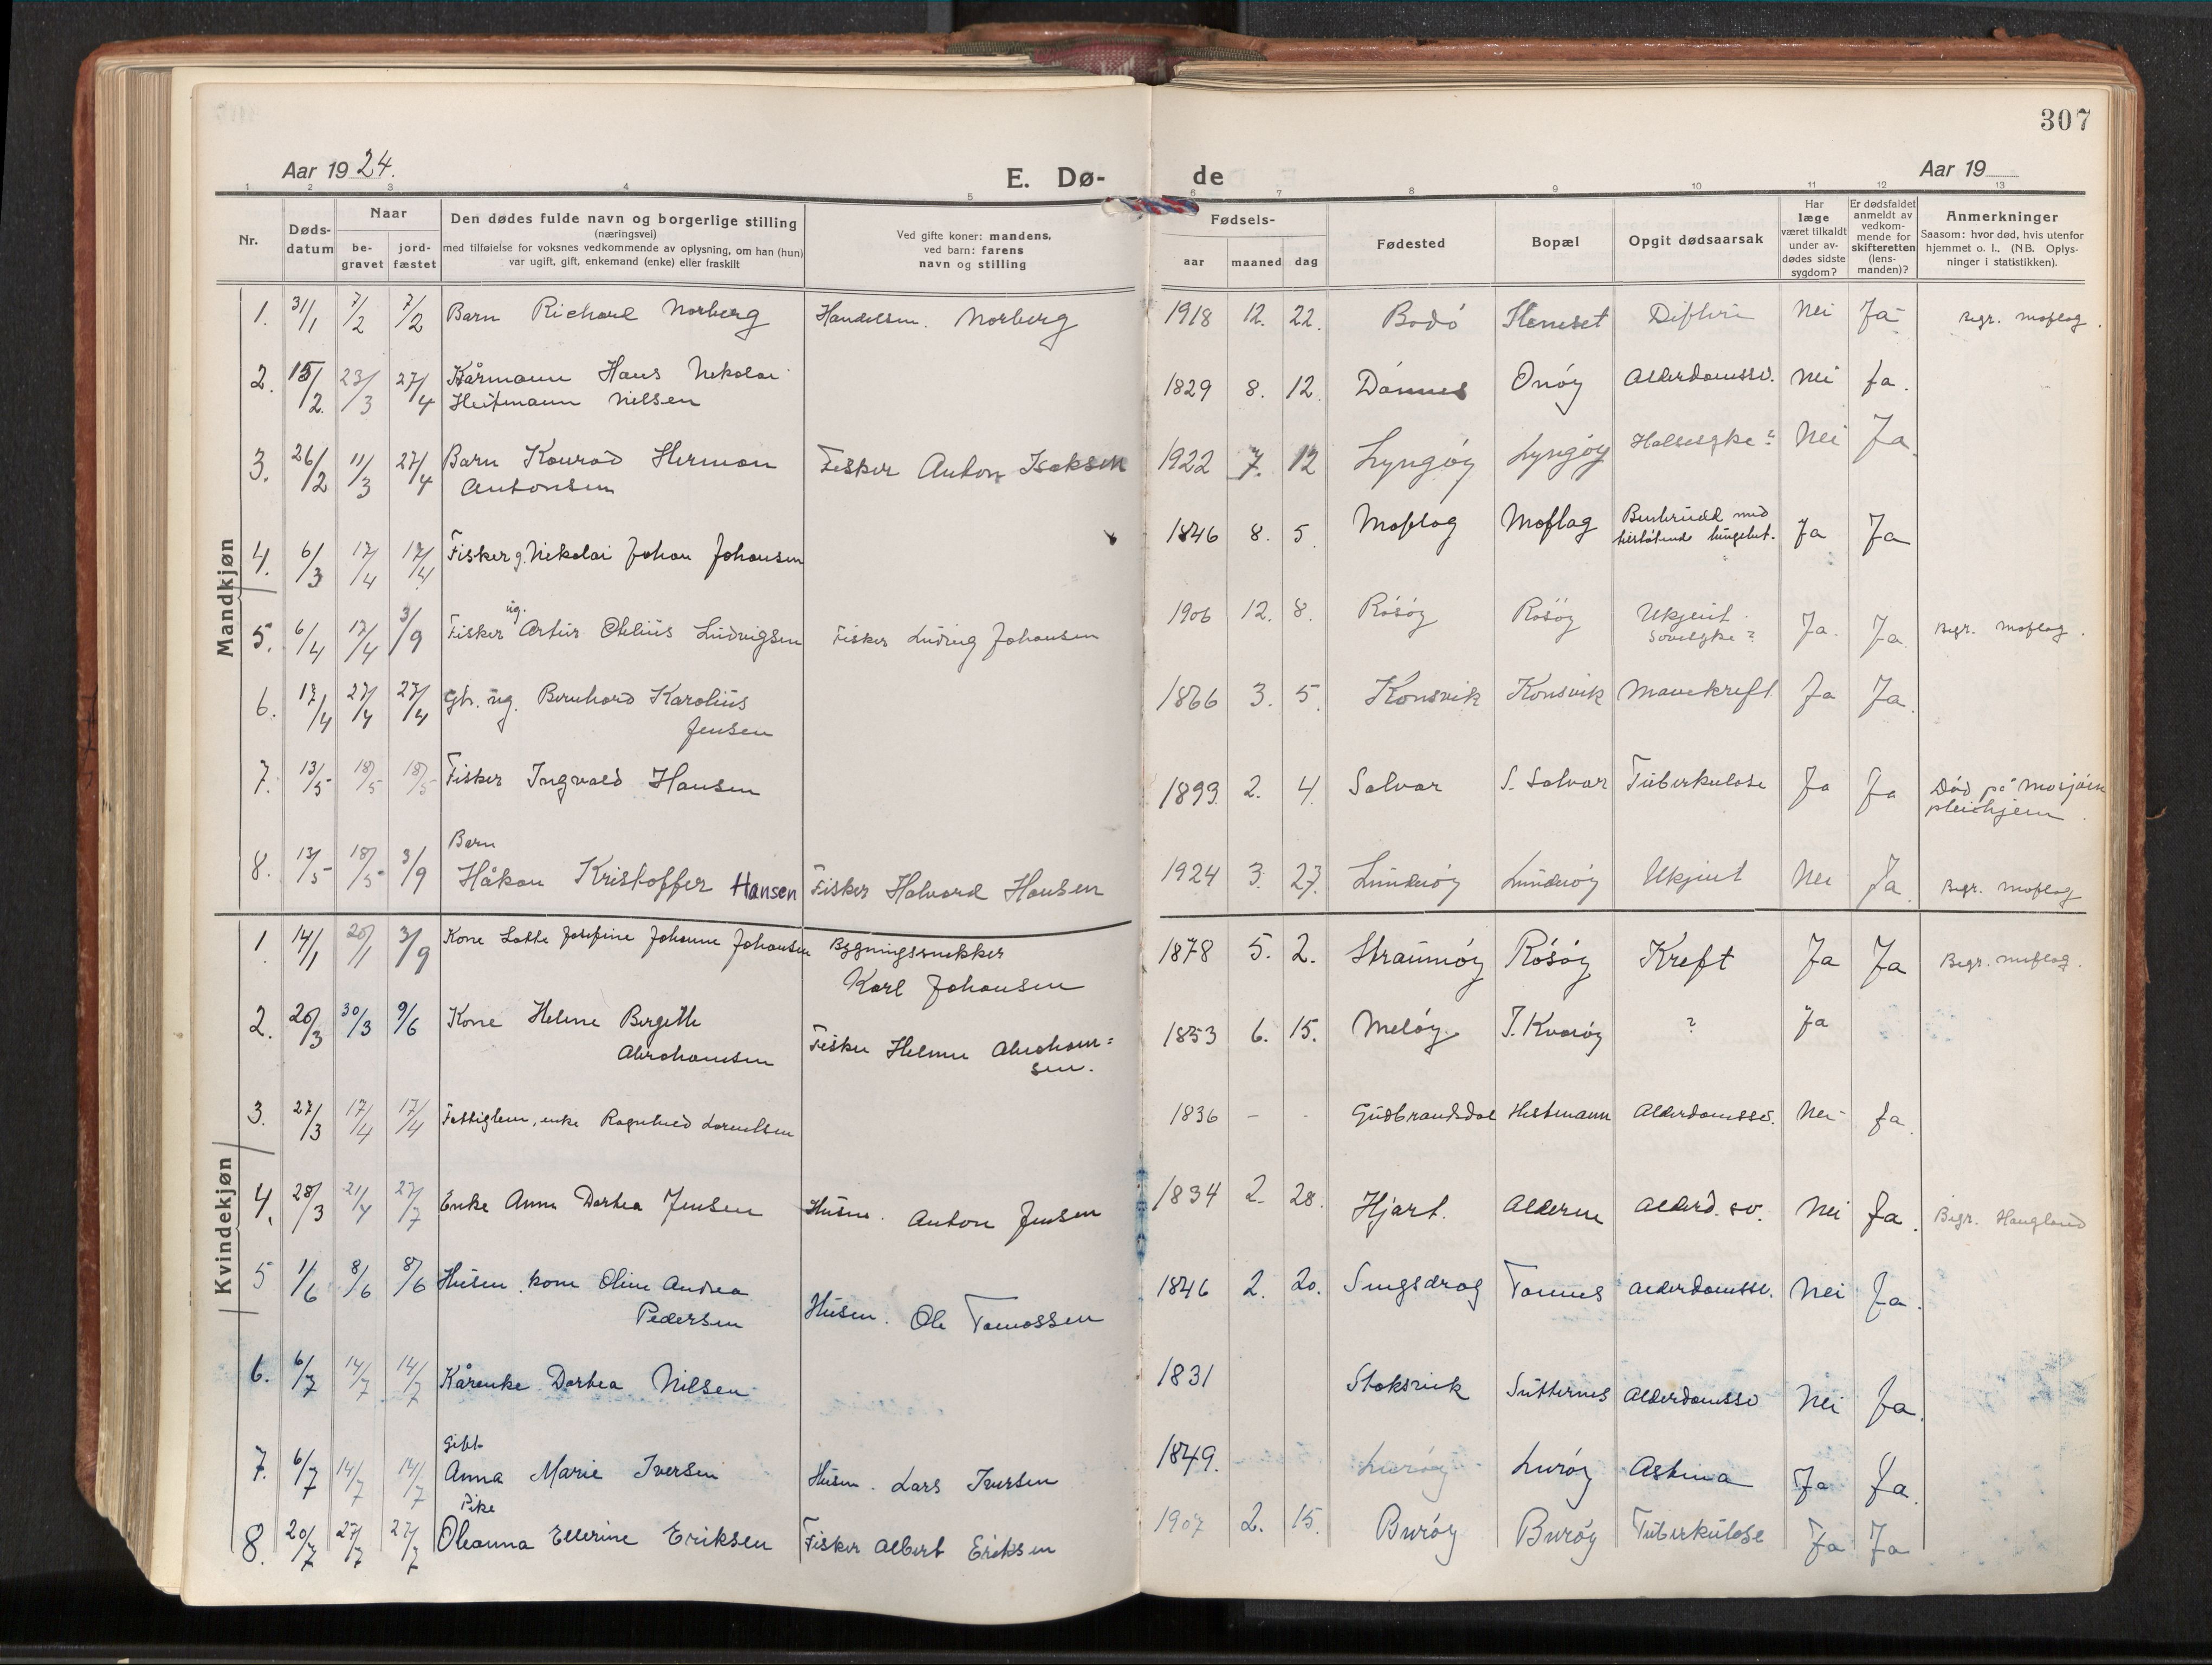 307
Aar 1924.
E. Dø-
de
Aar 19
1 2 3 4 5 6 7 8 9 10 11 12 13
Nr.
Døds-
datum
Naar
be-
gravet
jord-
fæstet
Den dødes fulde navn og borgerlige stilling
(næringsvei)
med tilføielse for voksnes vedkommende av oplysning, om han (hun)
var ugift, gift, enkemand (enke) eller fraskilt
Ved gifte koner: mandens,
ved barn: farens
navn og stilling
Fødsels-
aar
maaned
dag
Fødested
Bopæl
Opgit dødsaarsak
Har
læge
været tilkaldt
under av-
dødes sidste
sygdom?
Er dødsfaldet
anmeldt av
vedkom-
mende for
skifteretten
(lens-
manden)?
Anmerkninger
Saasom: hvor død, hvis utenfor
hjemmet o. l., (NB. Oplys-
ninger i statistikken).
Mandkjøn
1. 31/1 7/2 7/2 Barn Richard Norberg Handelsm. Norberg 1918 12. 22. Bodó Stenset Difteri Nei Ja Begr. Moflag.
2. 15/2 23/3 27/4 Kårmann Hans Nikolai 1829 8. 12. Dónnes Onóy Alderdomssv. Nei Ja.
Heitmann Nilsen
3. 26/2 11/3 27/4 Barn Konrad Herman Fisker Anton Isaksen 1922 7. 12 Lyngóy Lyngóy Halsesyke? Nei Ja
Antonsen
4. 6/3 17/4 17/4 Fisker g. Nikolai Johan Johansen 1846 8. 5. Moflag Moflag Benbrudd med
tilstøtende lungebet. Ja Ja
5. 6/4 17/4 3/9 Fisker ug. Artur Otelius Ludvigsen Fisker Ludvig Johansen 1906 12. 8. Rósóy Rósóy Ukjent.
Sovesyke? Ja. Ja. Begr. Moflag.
6. 17/4 27/4 27/4 Gbr. ug. Bernhard Karolius 1866 3. 5. Konsvik Konsvik Mavekreft Ja Ja.
Jensen
7. 13/5 18/5 18/5 Fisker Ingvald Hansen 1893. 2. 4. Solvar S. Solvar Tuberkulose Ja Ja Död på Mosjöen
pleiehjem.
Barn
8. 13/5 18/5 3/9 Håkon Kristoffer Hansen Fisker Halvard Hansen 1924 3. 27. Lundóy Lundóy Ukjent Nei Ja. Begr. Moflag
Kvindekjøn
1. 14/1 20/1 3/9 Kone Lotte Josefine Johanne Johansen Bygningssnekker 1878 5. 2. Straumóy Rósóy Kreft Ja Ja Begr. Moflag.
Karl Johansen
2. 20/3 30/3 9/6 Kone Helene Bergette 1853 6. 15. Melóy. I. Kvaróy ? Ja
Abrahamsen Fisker Helmer Abraham=
sen.
3. 27/3 17/4 17/4 Fattiglem, enke Ragnhild Lorentsen 1836 - - Gudbrandsdal Hestmann Alderdomssv. Nei Ja.
4. 28/3 21/4 27/7 Enke Anna Dortea Jensen Husm. Anton Jensen 1834 2. 28. Hjart. Alderen Alderd. sv. Nei Ja. Begr. Haugland
5 1/6 8/6 8/6 Husm. kone Oline Andrea 1846 2. 20. Sungsdrag Tonnes Alderdomssv. Nei Ja.
Pedersen Husm. Ole Tomassen
6. 6/7 14/7 14/7 Kårenke Dortea Nilsen 1831 Stoksvik Sutternes Alderdomssv Nei Ja.
Gift
7. 6/7 14/7 14/7 Anna Marie Iversen Husm. Lars Iversen 1849. Luróy Luróy Astma Ja Ja.
Pike
8. 20/7 27/7 27/7 Oleanna Ellerine Eriksen Fisker Albert Eriksen 1907 2. 15. Buróy Buróy Tuberkulose Ja Ja